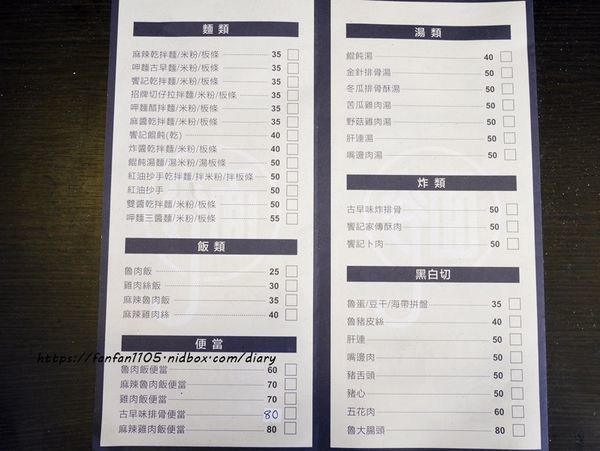 麵類
麻辣乾拌麵/米粉/板條 35
呷麵古早麵/米粉/板條 35
饗記乾拌麵/米粉/板條 35
招牌切仔拉拌麵/米粉/板條 35
呷麵醋拌麵/米粉/板條 35
麻醬乾拌麵/米粉/板條 35
饗記餛飩(乾) 40
炸醬乾拌麵/米粉/板條 40
餛飩湯麵/湯米粉/湯板條 50
紅油抄手乾拌麵/拌米粉/拌板條 50
紅油抄手 50
雙醬乾拌麵/米粉/板條 50
呷麵三醬麵/米粉/板條 55
飯類
魯肉飯 25
雞肉絲飯 30
麻辣魯肉飯 35
麻辣雞肉絲 40
便當
https://fanfan1105.nidbox.com/diary
魯肉飯便當 60
麻辣魯肉飯便當 70
雞肉飯便當 70
古早味排骨便當 80
麻辣雞肉飯便當 80
湯類
餛飩湯 40
金針排骨湯 50
冬瓜排骨酥湯 50
苦瓜雞肉湯 50
野菇雞肉湯 50
肝連湯 50
嘴邊肉湯 50
炸類
古早味炸排骨 50
饗記家傳酥肉 50
饗記卜肉 50
黑白切
魯蛋/豆干/海帶拼盤 35
魯豬皮絲 40
肝連 50
嘴邊肉 50
豬舌頭 50
豬心 50
五花肉 60
魯大腸頭 80